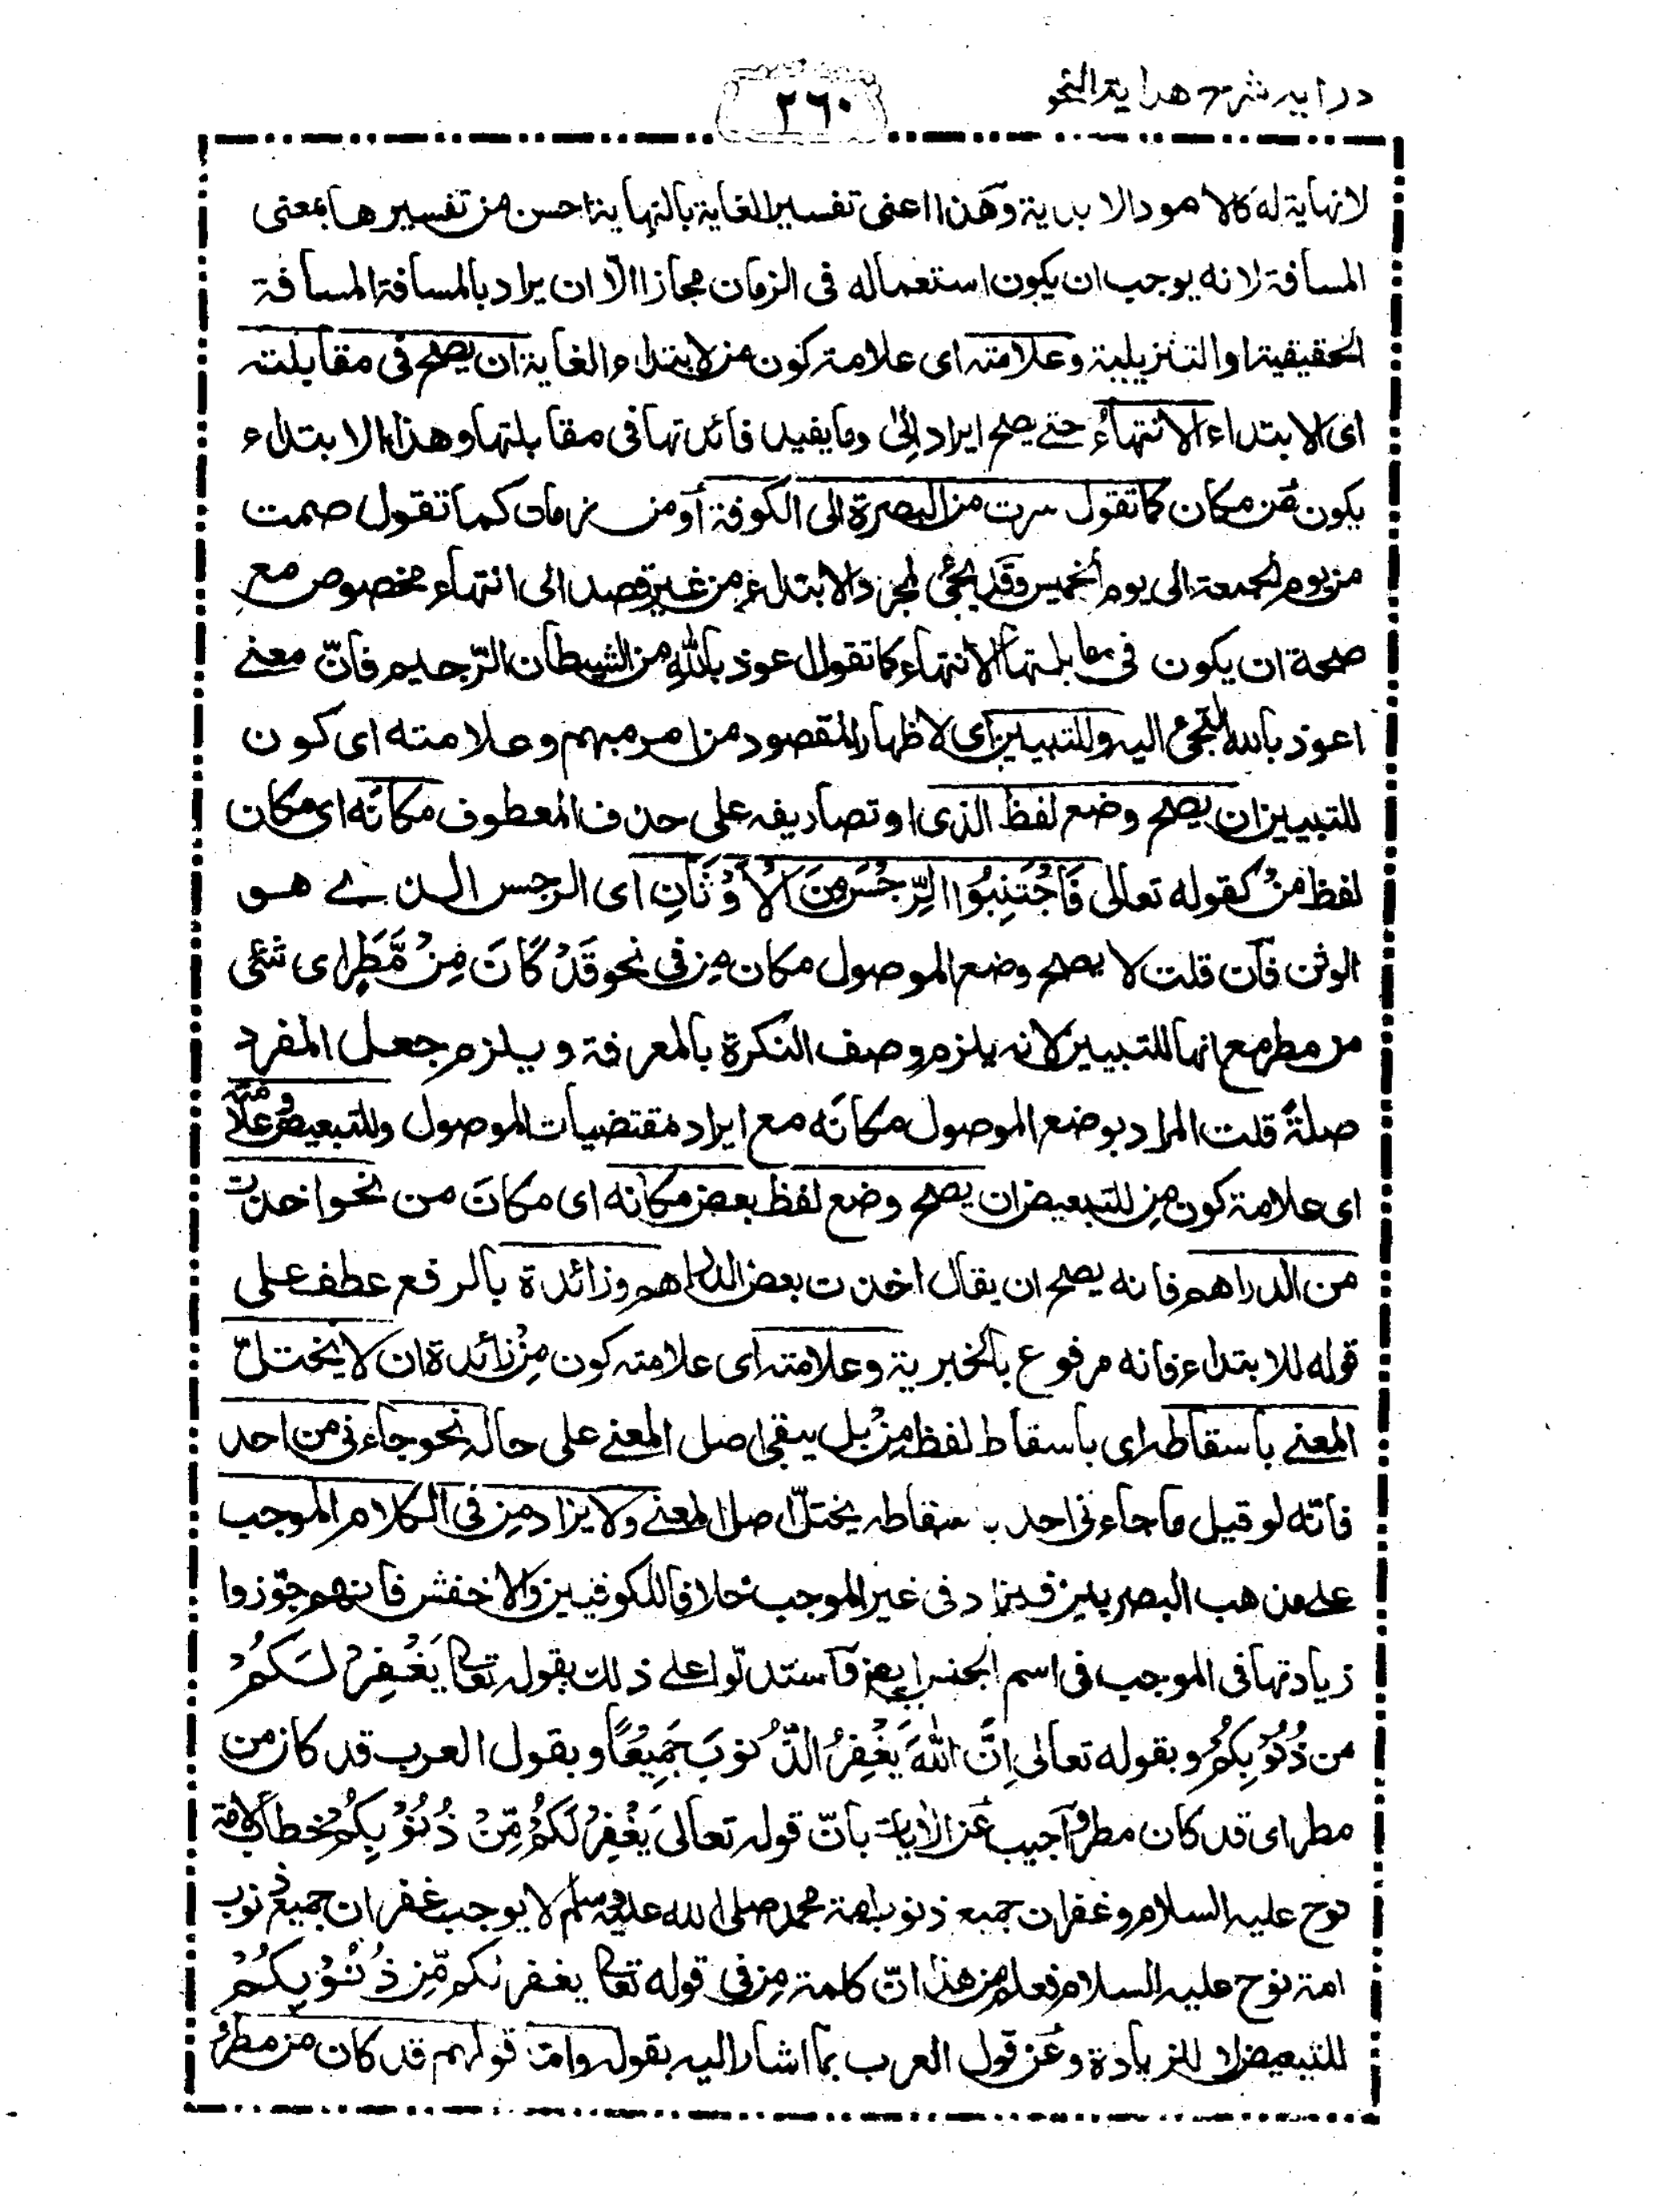 درايه شرح هداية النحو
٢٦٠
لانهاية له كالامود الابدية وهذا اعنى تفسير الغاية بالنهاية احسن من تفسيرها بمعنى
المسافة لانه يوجب ان يكون استعماله فى الزمان مجازا الّا ان يراد بالمسافة المسافة
الحقيقية او التنزيلية وعلامته اى علامة كون من لابتداء الغاية ان يصلح فى مقابلته
اى الابتداء الانتهاءُ حتى يصلح ايراد اِلىٰ وما يفيد فائدتها فى مقابلتها وهذا الابتداء
يكون عن مكان كما تقول سرت من البصرة الى الكوفة أو من زمان كما تقول صمت
من يوم الجمعة الى يوم الخميس وقد يجئ لمجرد الابتداء من غير قصد الى انتهاء مخصوص مع
صحة ان يكون فى مقابلتها الانتهاء كما تقول اعوذ باللهِ من الشيطان الرّجيم فانّ معنے
اعوذ بالله التجئ اليه وللتبيين اى لاظهار المقصود من امر مبهم وعلامته اى كون
للتبيين ان يصلح وضع لفظ الذى او تصاريفه على حذف المعطوف مكانَه اى مكان
لفظ مِنْ كقوله تعالى فَاجْتَنِبُوا الرِّجْسَ مِنَ الْاَوْثَانِ اى الرجس الذے هو
الوثن فآن قلت لا يصلح وضع الموصول مكان مِن فى نحو قَدْ كَانَ مِنْ مَّطَرٍ اى شئى
من مطر مع انها للتبيين لانه يلزم وصف النكرة بالمعرفة ويلزم جعل المفرد
صلةً قلت المراد بوضع الموصول مكانَه مع ايراد مقتضيات الموصول وللتبعيض وعلامته
اى علامة كون مِن للتبعيض ان يصلح وضع لفظ بعض مكانه اى مكانَ من نحو اخذت
من الدراهم فانه يصلح ان يقال اخذت بعض الدراهم وزائدة بالرفع عطف على
قوله للابتداء فانه مرفوع بالخبرية وعلامته اى علامته كون مِنْ زائدة ان لا يختلّ
المعنے باسقاطه اى باسقاط لفظ مِنْ بل يبقى اصل المعنے على حاله نحو جاءنى من احد
فانّه لو قيل ما جاءنى احد باسقاطه يختلّ اصل المعنے ولا يزاد مِن فى الكلام الموجب
علے مذهب البصريين فيزاد فى غير الموجب خلافا للكوفيين والاخفش فانهم جوّزوا
زيادتها فى الموجب فى اسم الجنس ايض وآستدلّوا علے ذلك بقوله تعالى يَغْفِرْ لَكُمْ
من ذُنُوْبِكُمْ وبقوله تعالى اِنَّ اللهَ يَغْفِرُ الذُّنُوْبَ جَمِيْعًا وبقول العرب قد كان من
مطر اى قد كان مطر وآجيب عن الاٰيات بانّ قوله تعالىٰ يَغْفِرْ لَكُمْ مِّنْ ذُنُوْبِكُمْ خطاب لامة
نوح عليه السلام وغفران جميع ذنوب امة محمد صلى الله عليه وسلم لا يوجب غفران جميع ذنوب
امة نوح عليه السلام فعلم من هذا انّ كلمة مِن فى قوله تعالى يغفر لكم مّن ذُنُوْبِكُمْ
للتبعيض لا للزيادة وعَن قول العرب بما اشار اليه بقوله وامّا قولهم قد كان من مطر